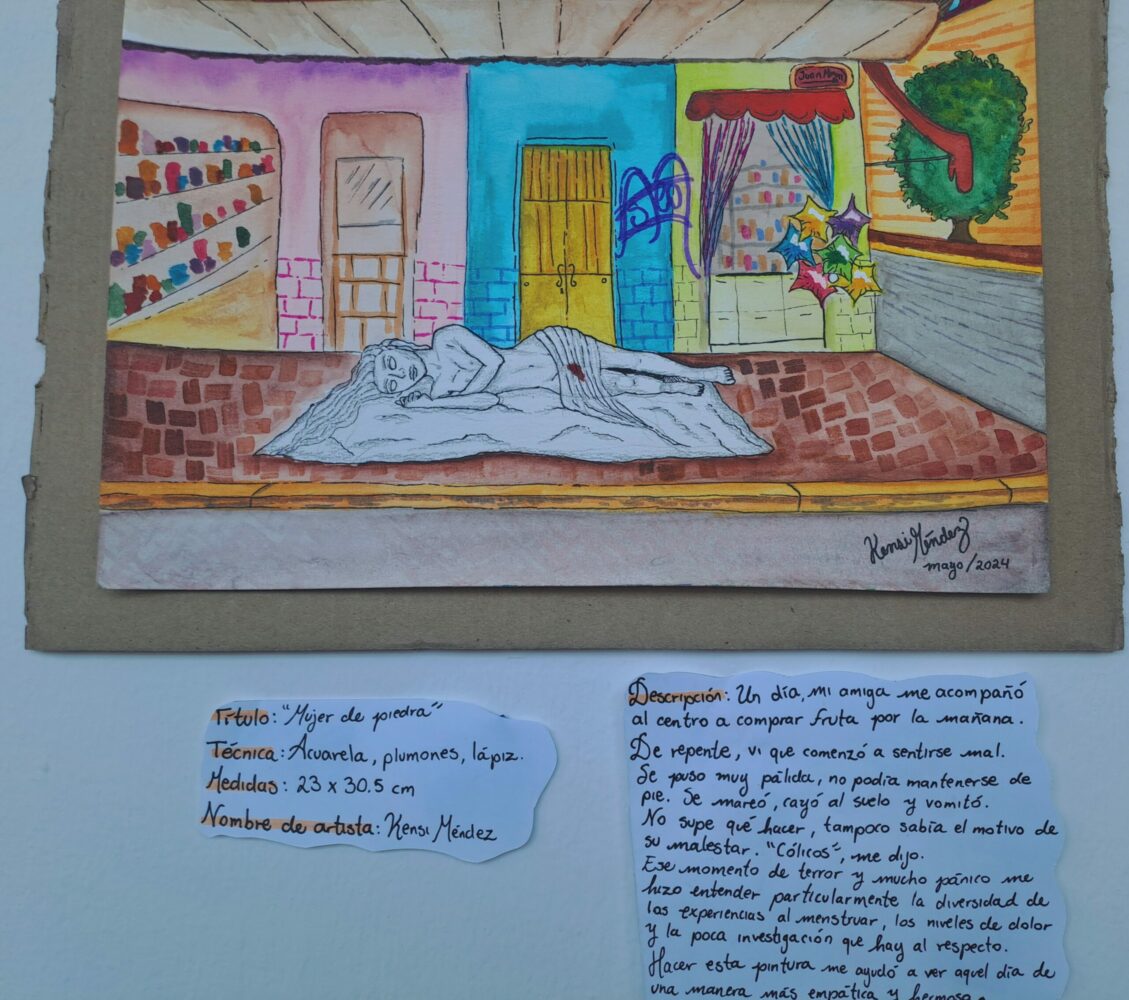 Juan
Kensi Méndez
mayo/2024
Título: "Mujer de piedra"
Técnica: Acuarela, plumones, lápiz.
Medidas: 23 x 30.5 cm
Nombre de artista: Kensi Méndez
Descripción: Un día, mi amiga me acompañó
al centro a comprar fruta por la mañana.
De repente, vi que comenzó a sentirse mal.
Se puso muy pálida, no podía mantenerse de
pie. Se mareó, cayó al suelo y vomitó.
No supe qué hacer, tampoco sabía el motivo de
su malestar. "Cólicos", me dijo.
Ese momento de terror y mucho pánico me
hizo entender particularmente la diversidad de
las experiencias al menstruar, los niveles de dolor
y la poca investigación que hay al respecto.
Hacer esta pintura me ayudó a ver aquel día de
una manera más empática y hermosa